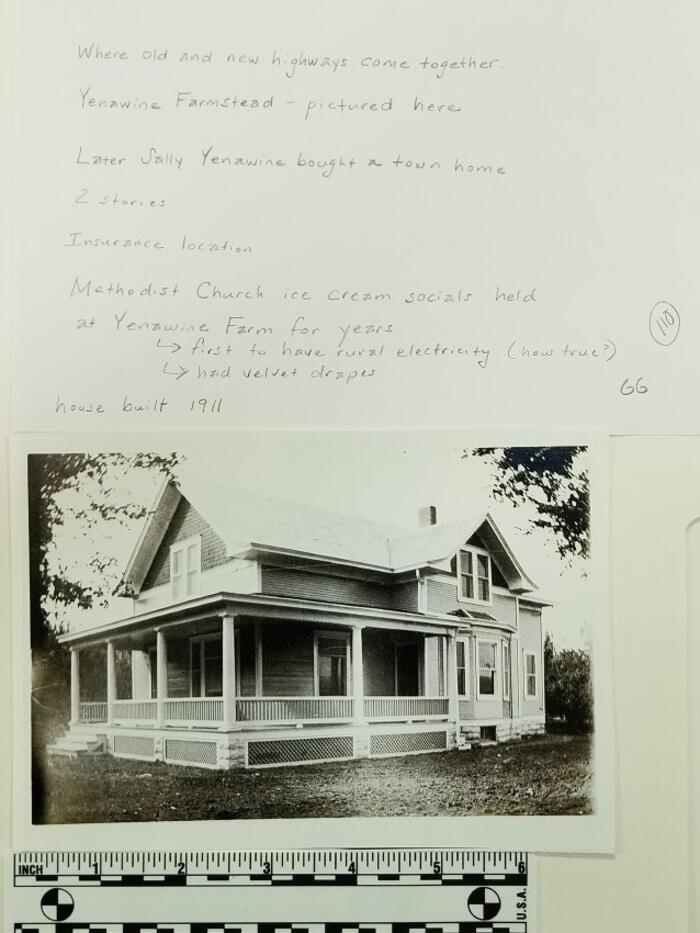 Where old and new highways come together.
Yenawine Farmstead - pictured here
Later Sally Yenawine bought a town home
2 stories
Insurance location
Methodist Church ice cream socials held
at Yenawine Farm for years
↳ first to have rural electricity (how true?)
↳ had velvet drapes
110
66
house built 1911
INCH 1 2 3 4 5 6
U.S.A.